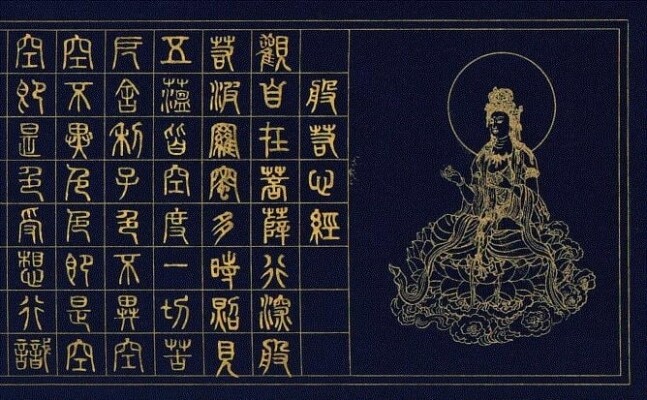 般若心經
觀自在菩薩行深般
若波羅蜜多時照見
五蘊皆空度一切苦
厄舍利子色不異空
空不異色色即是空
空即是色受想行識